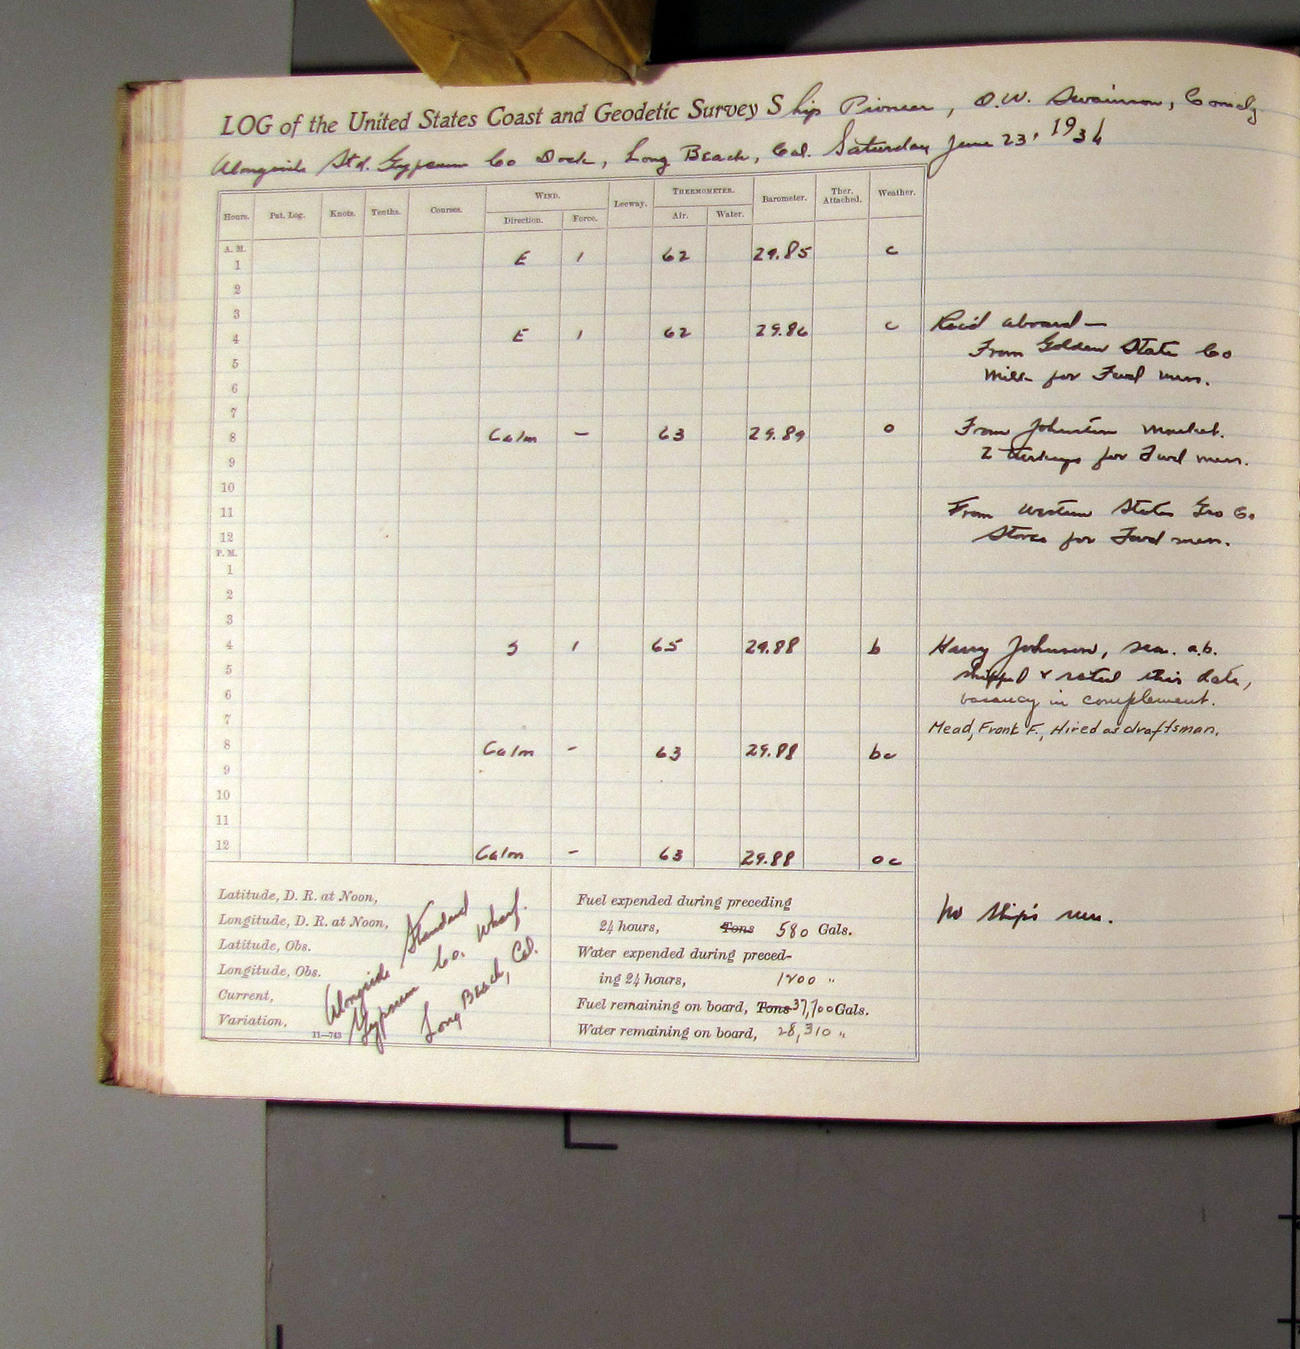 LOG of the United States Coast and Geodetic Survey Ship Pioneer, O.W. Swainson, Comdg
Alongside Std. Gypsum Co Dock, Long Beach, Cal. Saturday June 23, 1934
Hours. Pat. Log. Knots. Tenths. Courses. WIND. Direction. Force. Leeway. THERMOMETER. Air. Water. Barometer. Ther. Attached. Weather.
A. M.
1 E 1 62 29.85 c
2
3
Rec'd aboard —
4 E 1 62 29.86 c
From Golden State Co
5
Milk for Fwd mess.
6
7
8 Calm – 63 29.89 o
From Johnston Market.
9
2 turkeys for Fwd mess.
10
11
From Western States Gro Co
12
Stores for Fwd mess.
P. M.
1
2
3
4 S 1 65 29.88 b
Harry Johnson, sea. a.b.
5
shipped & rated this date,
6
vacancy in complement.
7
Mead, Frank F., Hired as draftsman.
8 Calm – 63 29.88 bc
9
10
11
12 Calm – 63 29.88 oc
Latitude, D. R. at Noon,
Longitude, D. R. at Noon,
Latitude, Obs.
Longitude, Obs.
Current,
Variation,
11—743
Alongside Standard
Gypsum Co. Wharf.
Long Beach, Cal.
Fuel expended during preceding
24 hours, Tons 580 Gals.
Water expended during preced-
ing 24 hours, 1800 "
Fuel remaining on board, Tons 37,700 Gals.
Water remaining on board, 28,310 "
No ship's run.